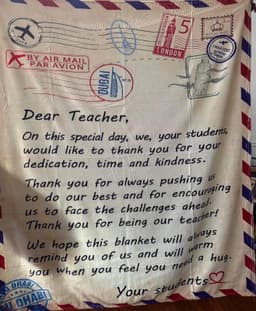 5
LONDON
BY AIR MAIL
PAR AVION
DUBAI
Dear Teacher,
On this special day, we, your students,
would like to thank you for your
dedication, time and kindness.
Thank you for always pushing us
to do our best and for encouraging
us to face the challenges ahead.
Thank you for being our teacher!
We hope this blanket will always
remind you of us and will warm
you when you feel you need a hug.
Your students
DHABI